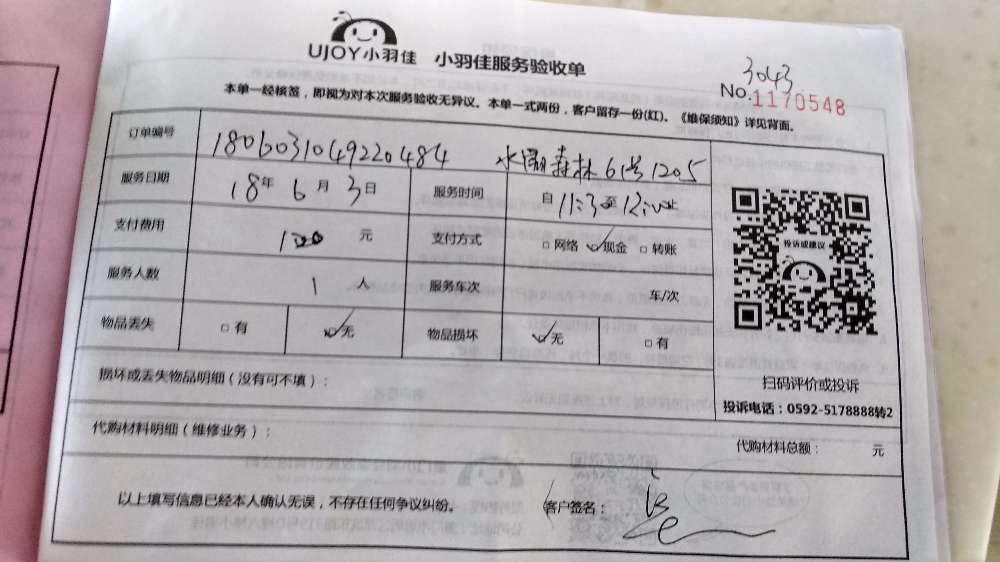 UJOY小羽佳 小羽佳服务验收单
3043
No.1170548
本单一经核签，即视为对本次服务验收无异议。本单一式两份，客户留存一份(红)。《维保须知》详见背面。
订单编号 1806031049220484 森林61号1205
服务日期 18年6月3日 服务时间 自11:3至12:00止
支付费用 100元 支付方式 □网络 ☑现金 □转账
投诉或建议
服务人数 1人 服务车次 车/次
物品丢失 □有 ☑无 物品损坏 ☑无 □有
损坏或丢失物品明细（没有可不填）：
扫码评价或投诉
投诉电话：0592-5178888转2
代购材料明细（维修业务）： 代购材料总额： 元
以上填写信息已经本人确认无误，不存在任何争议纠纷。 客户签名：